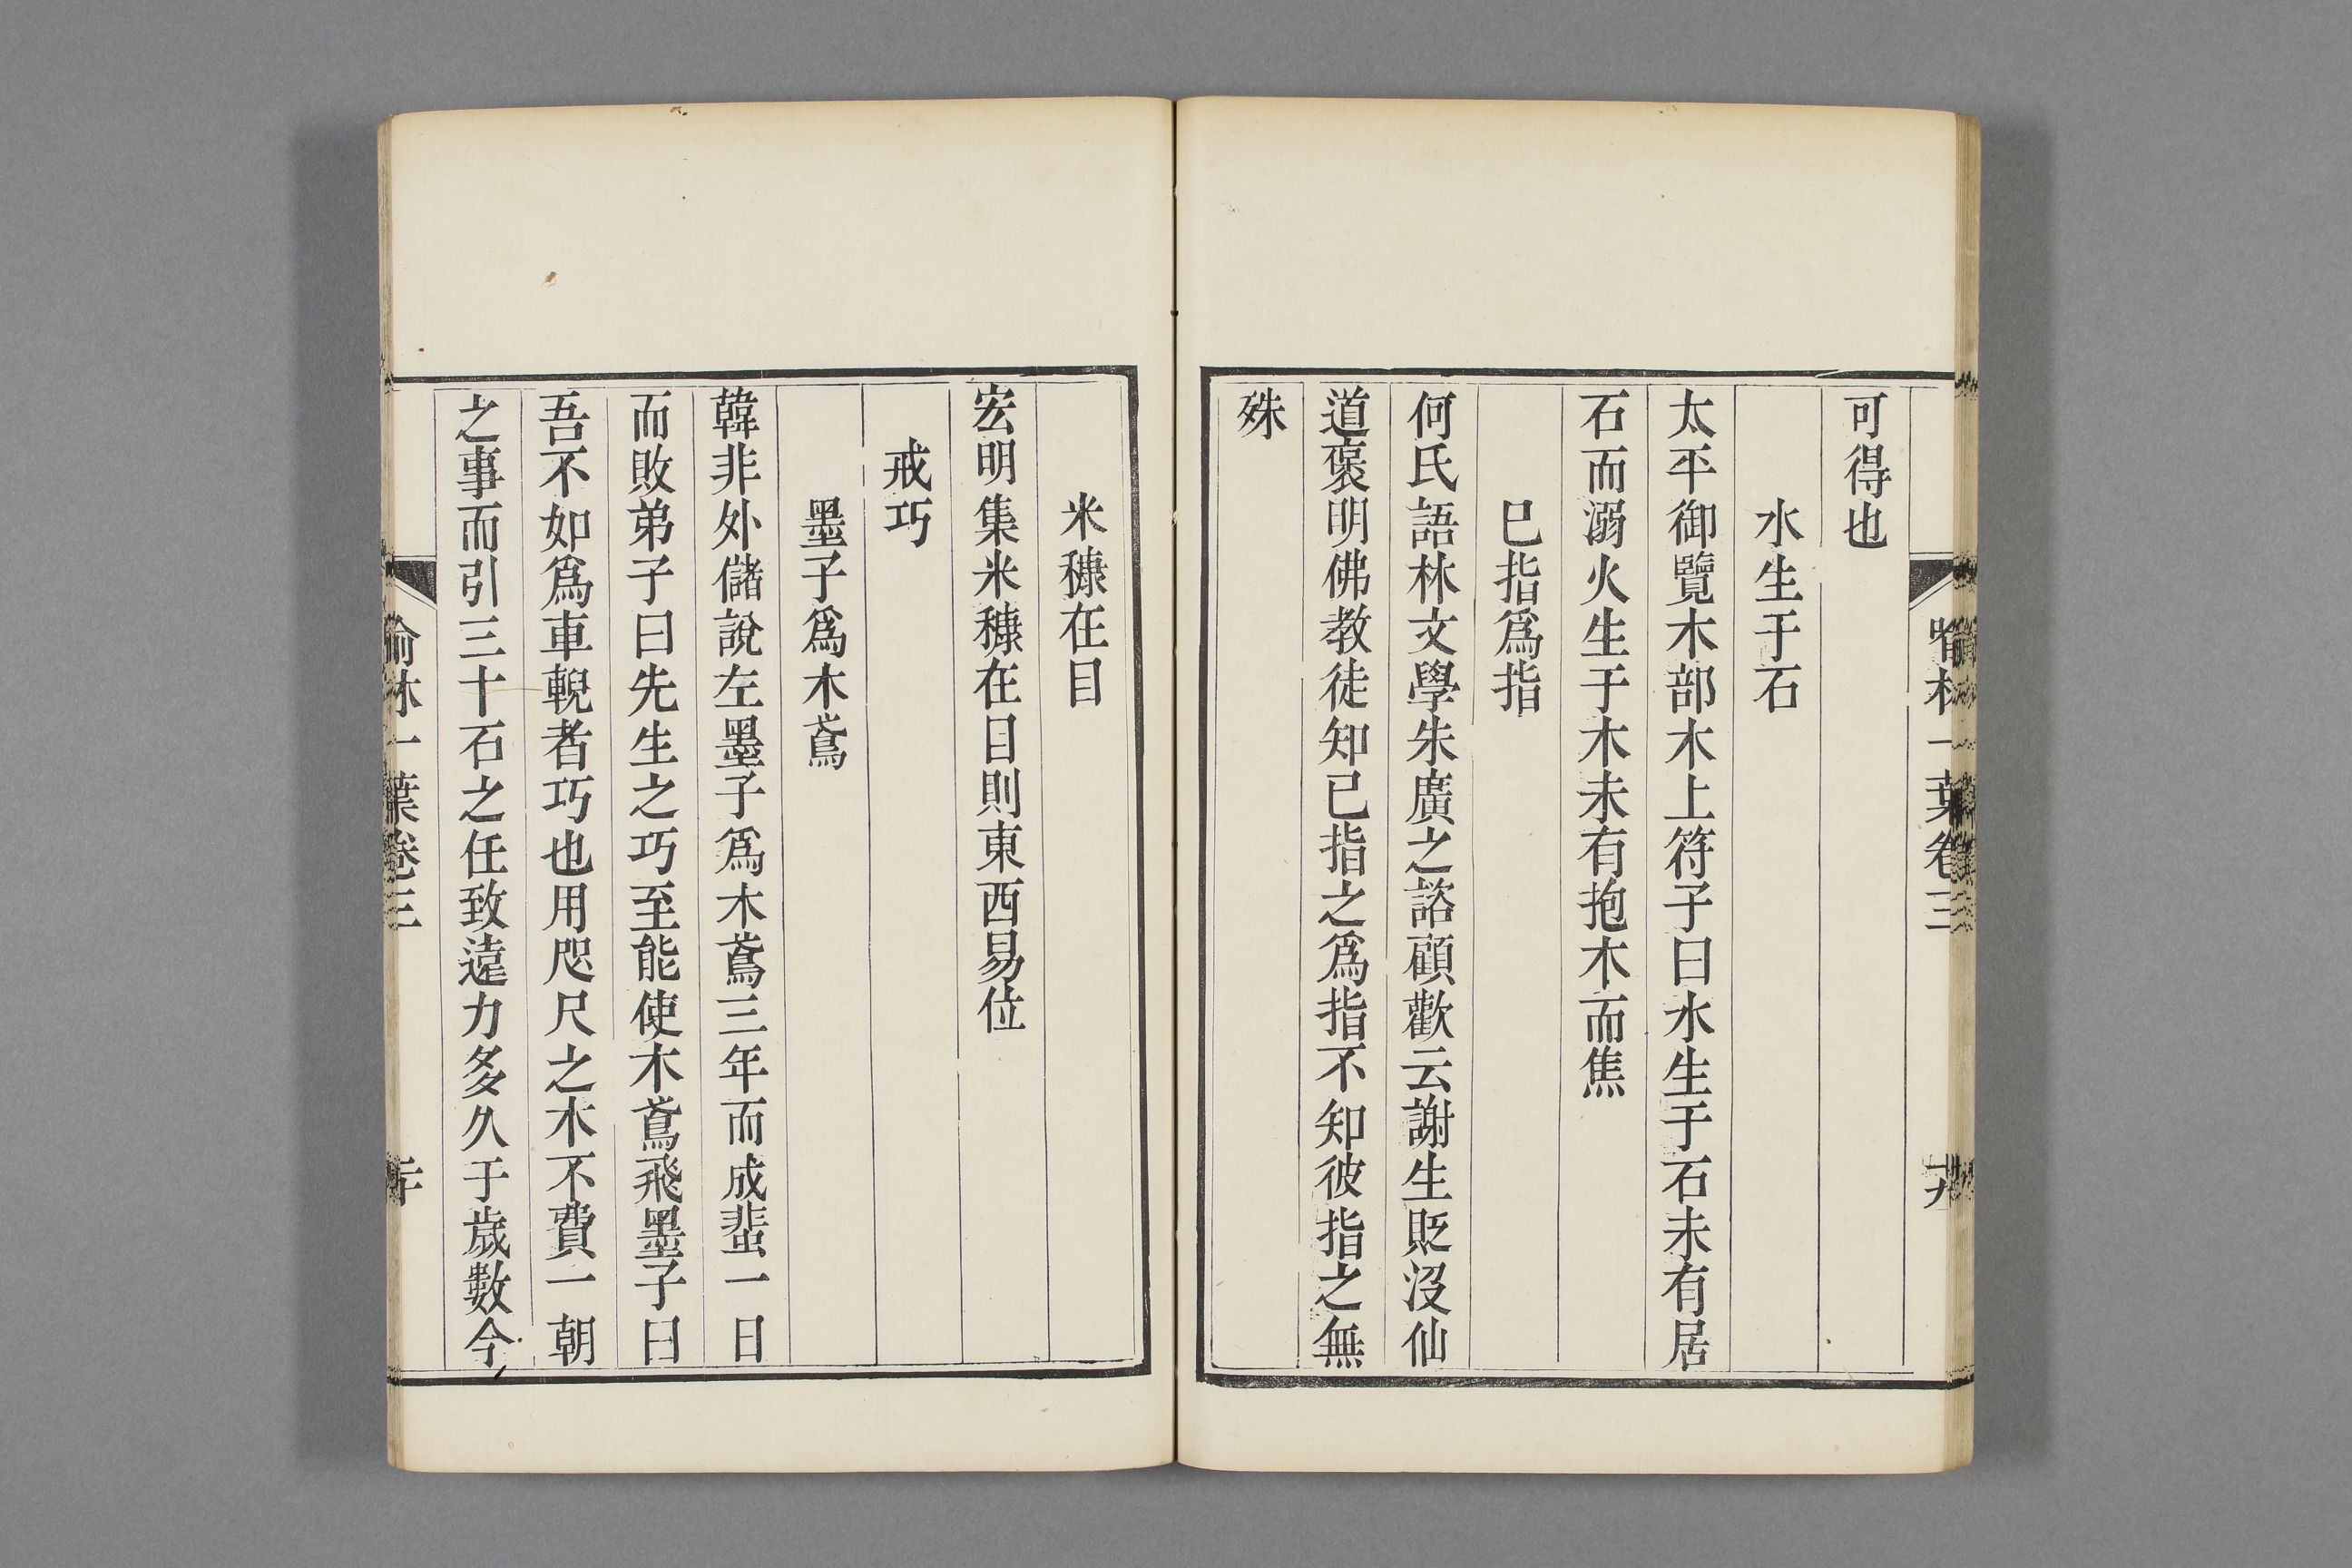 可得也
水生于石
太平御覽木部木上符子曰水生于石未有居
石而溺火生于木未有抱木而焦
巳指爲指
何氏語林文學朱廣之諮顧歡云謝生貶沒仙
道褒明佛教徒知已指之爲指不知彼指之無
殊
喻林一葉卷三
十九
米穅在目
宏明集米穅在目則東西易位
戒巧
墨子爲木鳶
韓非外儲說左墨子爲木鳶三年而成蜚一日
而敗弟子曰先生之巧至能使木鳶飛墨子曰
吾不如爲車輗者巧也用咫尺之木不費一朝
之事而引三十石之任致遠力多久于歲數今
喻林一葉卷三
二十